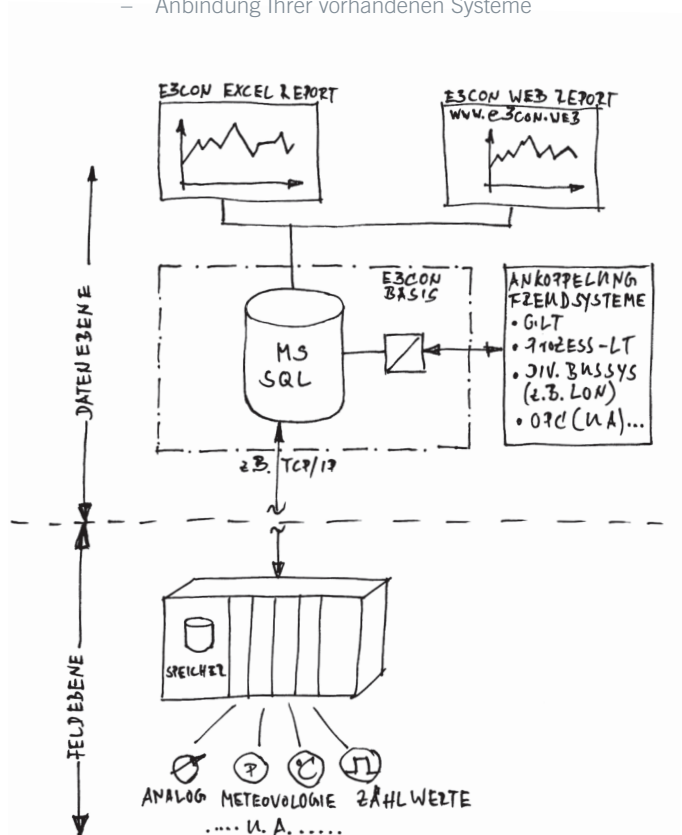 – Anbindung Ihrer vorhandenen Systeme
E3CON EXCEL REPORT
E3CON WEB REPORT
WWW.E3CON.WEB
E3CON
BASIS
MS
SQL
ANKOPPELUNG
FREMDSYSTEME
• GLT
• PROZESS-LT
• DIV. BUSSYS
(z.B. LON)
• OPC (UA)...
z.B. TCP/IP
DATENEBENE
FELDEBENE
SPEICHER
P
°C
ANALOG METEOROLOGIE ZÄHLWERTE
..... U. A. ......